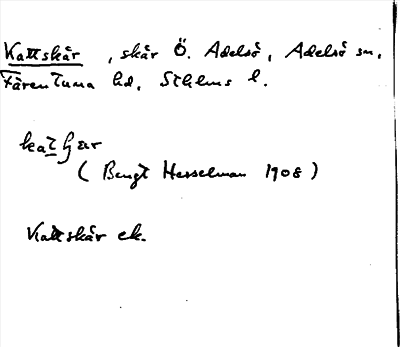 Kattskär , skär Ö. Adelsö, Adelsö sn,
Färentuna hd, Sthlms l.
( Bengt Hesselman 1908 )
Kattskär ek.